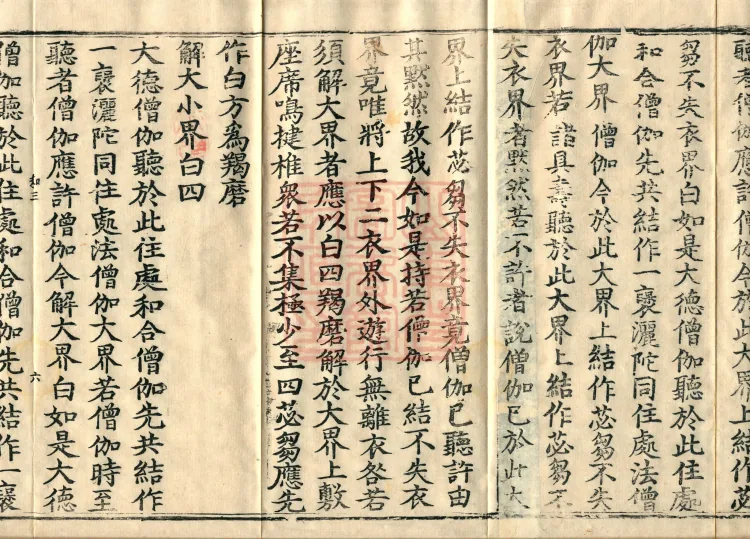 聽者僧伽應許僧伽今於此大界上結作苾
芻不失衣界白如是大德僧伽聽於此住處
和合僧伽先共結作一褒灑陀同住處法僧
伽大界僧伽今於此大界上結作苾芻不失
衣界若諸具壽聽於此大界上結作苾芻不
失衣界者默然若不許者說僧伽已於此大
界上結作苾芻不失衣界竟僧伽已聽許由
其默然故我今如是持若僧伽已結不失衣
界竟唯將上下二衣界外遊行無離衣咎若
須解大界者應以白四羯磨解於大界上敷
座席鳴揵椎眾若不集極少至四苾芻應先
作白方為羯磨
解大小界白四
大德僧伽聽於此住處和合僧伽先共結作
一褒灑陀同住處法僧伽大界若僧伽時至
聽者僧伽應許僧伽今解大界白如是大德
和三 六
僧伽聽於此住處和合僧伽先共結作一褒